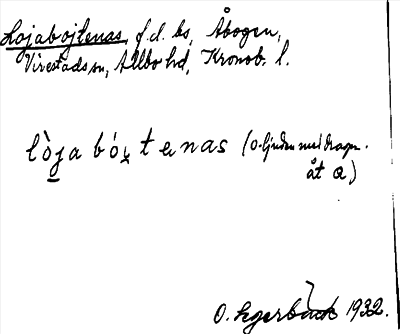 Lojabojtenas, f.d. bs, Åbogen,
Virestads sn, Allbo hd, Kronob. l.
lòja bói̯tenas (o-ljuden med dragn.
åt a)
O. Lgerback 1932.